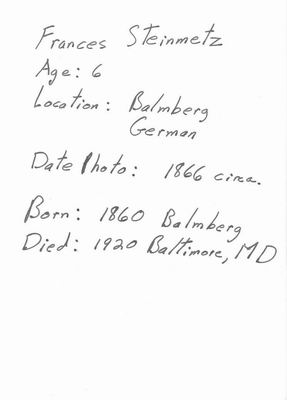 Frances Steinmetz
Age: 6
Location: Balmberg
German
Date Photo: 1866 circa.
Born: 1860 Balmberg
Died: 1920 Baltimore, MD